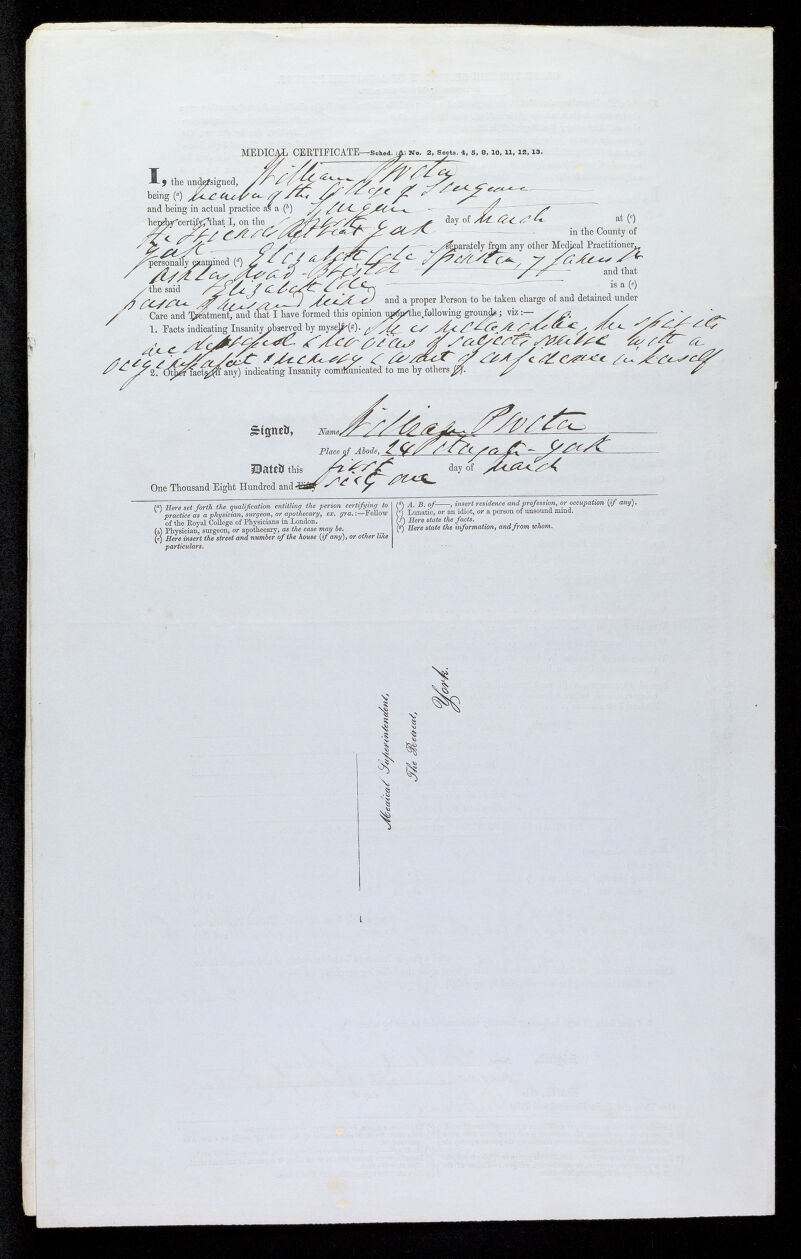 MEDICAL CERTIFICATE—Sched. (A) No. 2, Sects. 4, 5, 8, 10, 11, 12, 13.
I, the undersigned, William
being (a) member of the College of Surgeons
and being in actual practice as a (b) Surgeon
hereby certify, that I, on the day of March at (c)
the York in the County of
York separately from any other Medical Practitioner,
personally examined (d) Elizabeth Spinster, 7 James Pl
Ashley Road Bristol and that
the said Elizabeth is a (e)
person of unsound mind and a proper Person to be taken charge of and detained under
Care and Treatment, and that I have formed this opinion upon the following grounds; viz:—
1. Facts indicating Insanity observed by myself (f). She is melancholic, her spirits
are depressed & her views of subjects with a
of memory & want of confidence in herself
2. Other facts (if any) indicating Insanity communicated to me by others (g).
Signed, Name, William
Place of Abode, 24 York
Dated this first day of March
One Thousand Eight Hundred and Fifty sixty one
(a) Here set forth the qualification entitling the person certifying to
practice as a physician, surgeon, or apothecary, ex. gra.:—Fellow
of the Royal College of Physicians in London.
(b) Physician, surgeon, or apothecary, as the case may be.
(c) Here insert the street and number of the house (if any), or other like
particulars.
(d) A. B. of——, insert residence and profession, or occupation (if any).
(e) Lunatic, or an idiot, or a person of unsound mind.
(f) Here state the facts.
(g) Here state the information, and from whom.
Medical Superintendent,
The Retreat,
York.